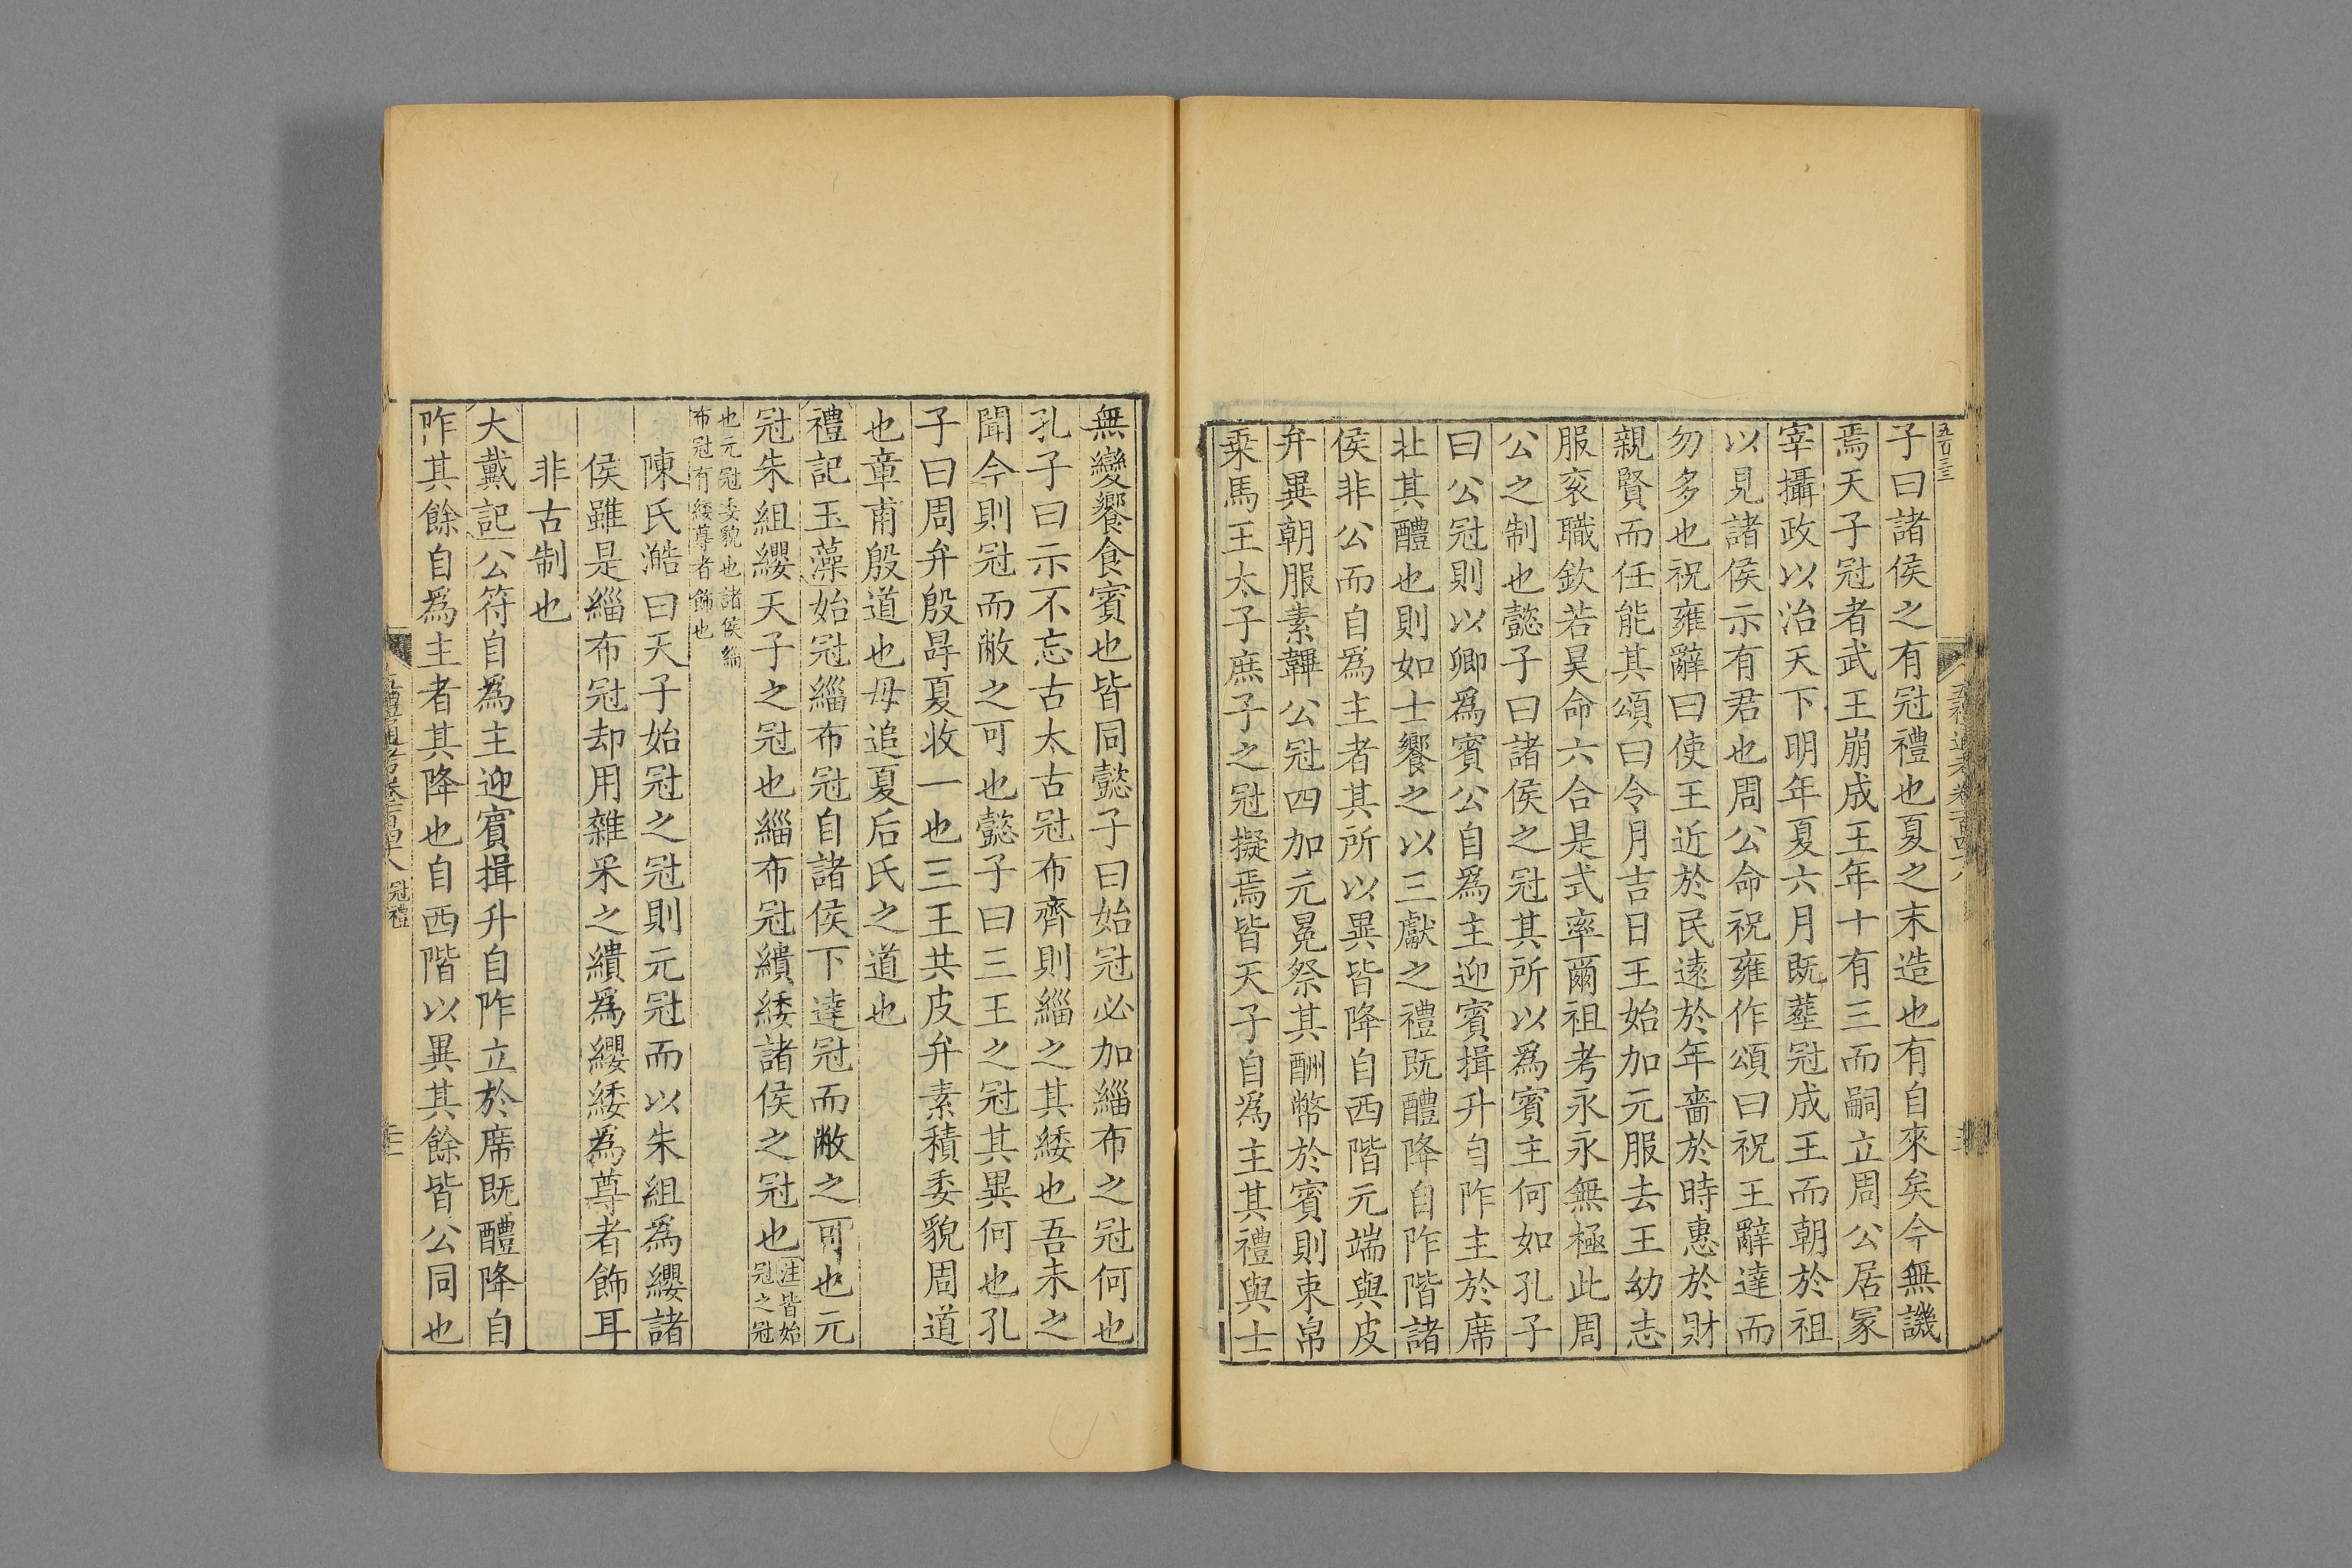 五百三三
五禮通考卷一百四十八
子曰諸侯之有冠禮也夏之末造也有自來矣今無譏
焉天子冠者武王崩成王年十有三而嗣立周公居冡
宰攝政以治天下明年夏六月旣葬冠成王而朝於祖
以見諸侯示有君也周公命祝雍作頌曰祝王辭達而
勿多也祝雍辭曰使王近於民遠於年嗇於時惠於財
親賢而任能其頌曰令月吉日王始加元服去王幼志
服衮職欽若昊命六合是式率爾祖考永永無極此周
公之制也懿子曰諸侯之冠其所以爲賓主何如孔子
曰公冠則以卿爲賓公自爲主迎賓揖升自阼主於席
北其醴也則如士饗之以三獻之禮旣醴降自阼階諸
侯非公而自爲主者其所以異皆降自西階元端與皮
弁異朝服素韠公冠四加元冕祭其酬幣於賓則束帛
乘馬王太子庶子之冠擬焉皆天子自爲主其禮與士
無變饗食賓也皆同懿子曰始冠必加緇布之冠何也
孔子曰示不忘古太古冠布齊則緇之其緌也吾未之
聞今則冠而敝之可也懿子曰三王之冠其異何也孔
子曰周弁殷冔夏收一也三王共皮弁素積委貌周道
也章甫殷道也毋追夏后氏之道也
禮記玉藻始冠緇布冠自諸侯下達冠而敝之可也元
冠朱組纓天子之冠也緇布冠繢緌諸侯之冠也注皆始
冠之冠
也元冠委貌也諸侯緇
布冠有緌尊者飾也
陳氏澔曰天子始冠之冠則元冠而以朱組爲纓諸
侯雖是緇布冠却用雜采之繢爲纓緌爲尊者飾耳
非古制也
大戴記公符自爲主迎賓揖升自阼立於席旣醴降自
阼其餘自爲主者其降也自西階以異其餘皆公同也
禮通考卷一百四十八 冠禮